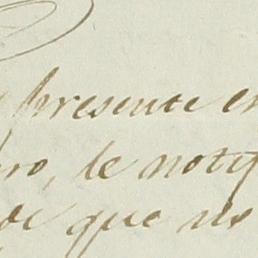 presente en
ro, le notif
que no